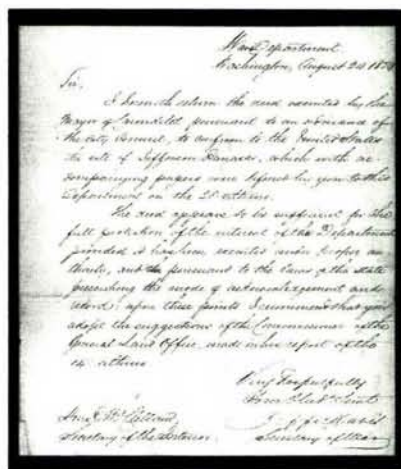 War Department
Washington, August 24 185
Sir,
I herewith return the deed executed by the
Mayor of Carondelet pursuant to an ordinance of
the City Council, to confirm to the United States
the site of Jefferson Barracks, which with ac
companying papers were referred by you to this
Department on the 21st
The deed appears to be sufficient for the
full protection of the interest of the Department
provided it has been executed under proper au
thority, and pursuant to the laws of the state
prescribing the mode of acknowledgement and
record: upon these points I recommend that you
adopt the suggestions of the Commissioner of the
General Land Office, made in his report of the
14
Very Respectfully
Your Obdt Servt
Hon R. McClelland
Jefferson Davis
Secretary of the Interior.
Secretary of War